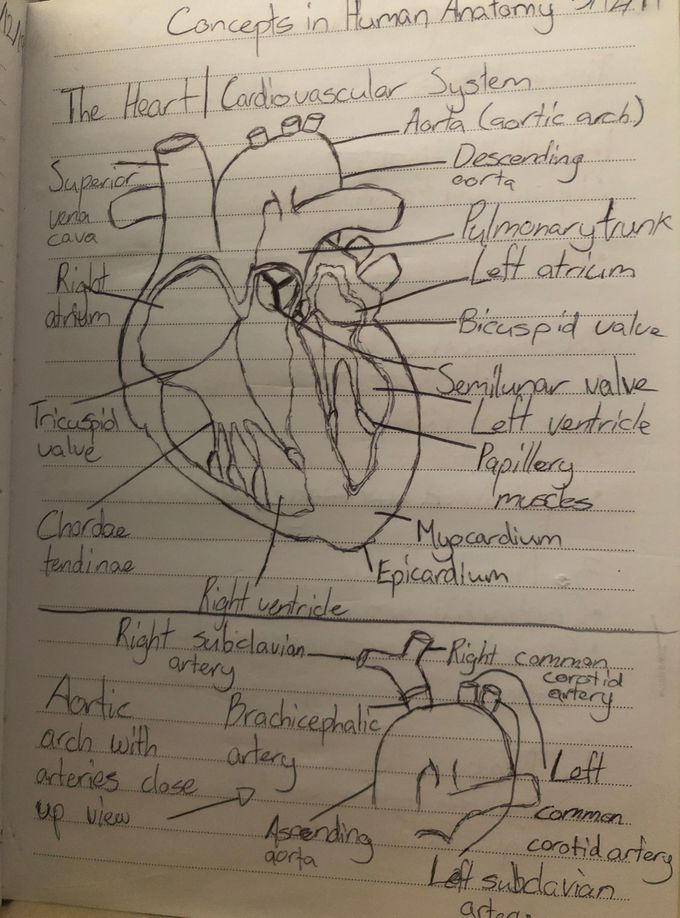 Concepts in Human Anatomy
The Heart/Cardiovascular System
Aorta (aortic arch)
Descending
aorta
Superior
vena
cava
Pulmonary trunk
Left atrium
Right
atrium
Bicuspid valve
Semilunar valve
Left ventricle
Tricuspid
valve
Papillery
muscles
Chordae
tendinae
Myocardium
Epicardium
Right ventricle
Right subclavian
artery
Right common
corotid
artery
Aortic
arch with
arteries close
up view
Brachicephalic
artery
Left
common
corotid artery
Ascending
aorta
Left subclavian